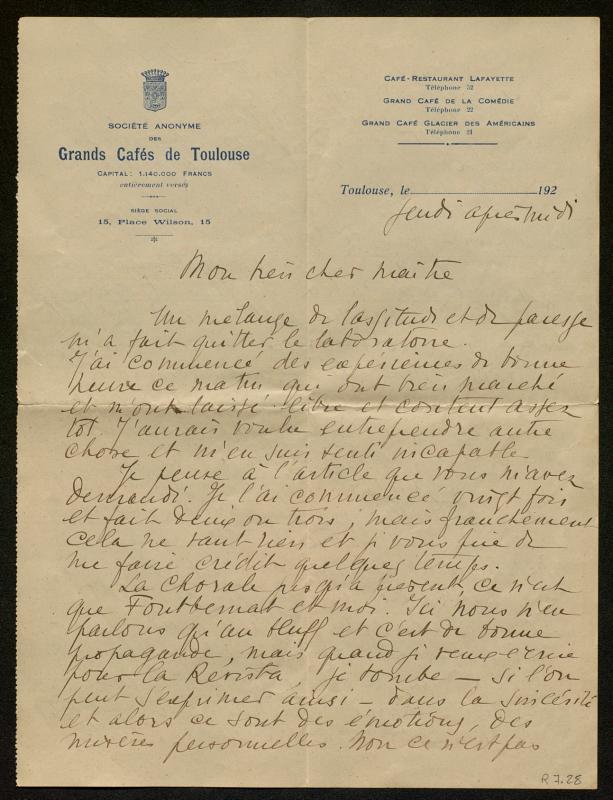 SOCIÉTÉ ANONYME
DES
Grands Cafés de Toulouse
CAPITAL: 1.140.000 FRANCS
entièrement versés
SIÈGE SOCIAL
15, Place Wilson, 15
CAFÉ-RESTAURANT LAFAYETTE
Téléphone 52
GRAND CAFÉ DE LA COMÉDIE
Téléphone 22
GRAND CAFÉ GLACIER DES AMÉRICAINS
Téléphone 21
Toulouse, le 192
Jeudi après midi
Mon très cher maître
Un mélange de lassitude et de paresse
m'a fait quitter le laboratoire.
J'ai commencé des expériences de bonne
heure ce matin qui ont bien marché
et m'ont laissé libre et content assez
tôt. J'aurais voulu entreprendre autre
chose et m'en suis senti incapable
Je pense à l'article que vous m'avez
demandé. Je l'ai commencé vingt fois
et fait deux ou trois, mais franchement
cela ne vaut rien et je vous prie de
me faire crédit quelques temps.
La Chorale jusqu'à présent, ce n'est
que Fontbernat et moi. Ici nous n'en
parlons qu'au bluff et c'est de bonne
propagande, mais quand je veux écrire
pour la Revista, je tombe – si l'on
peut s'exprimer ainsi – dans la sincérité
et alors ce sont des émotions, des
misères personnelles. Non ce n'est pas
R 7.28